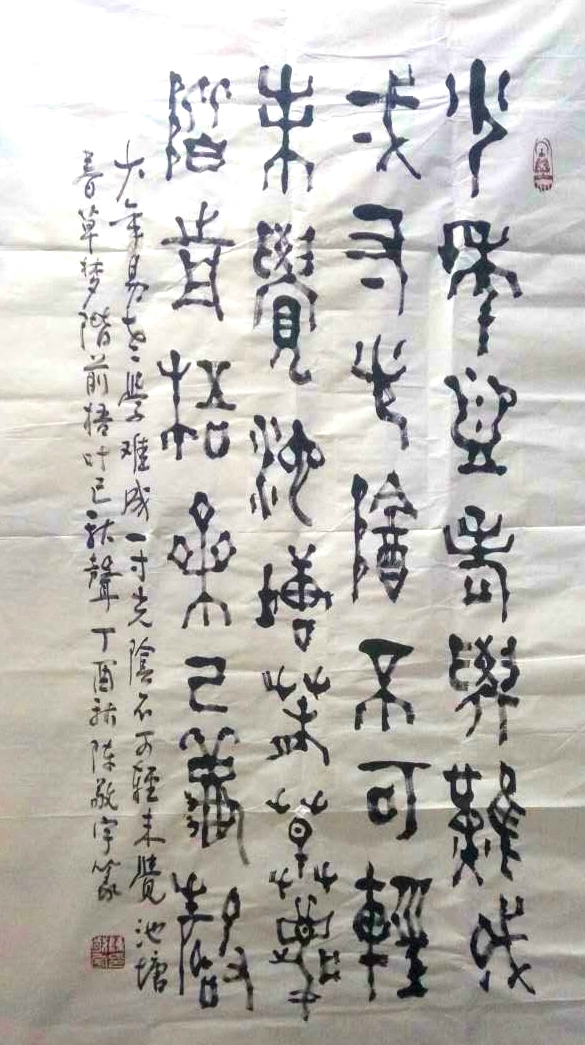 少年易老學難成
弌寸光陰不可輕
未覺池塘春草夢
階前梧葉已秋聲
少年易老學難成一寸光陰不可輕未覺池塘
春草梦階前梧叶已秋聲丁酉秋陈敬宇篆